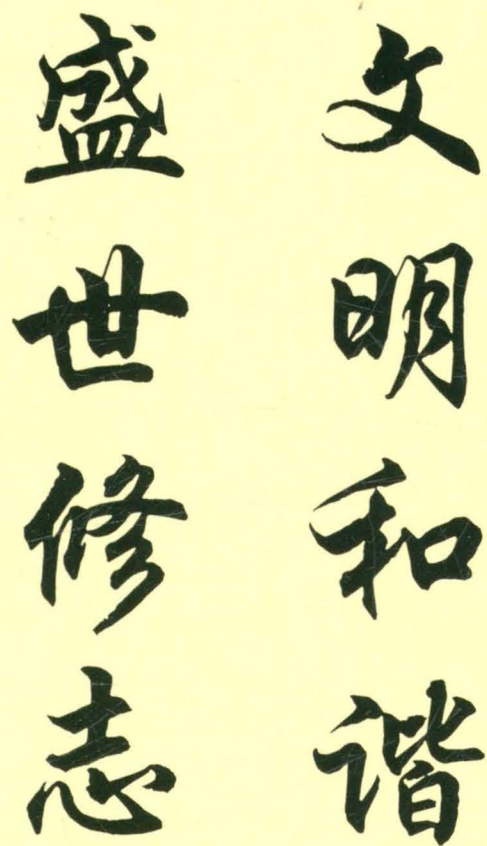 文明和谐
盛世修志